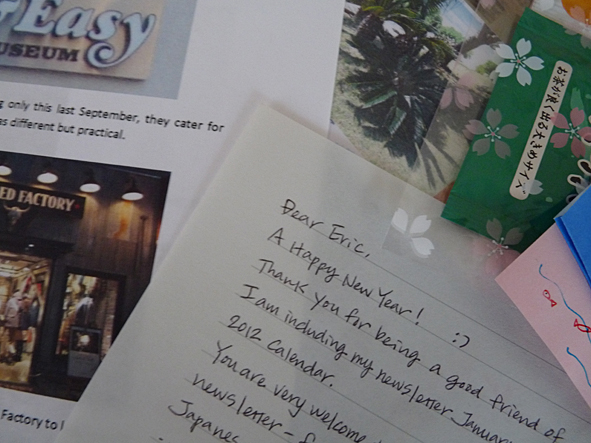 Easy
MUSEUM
only this last September, they cater for
as different but practical.
ED FACTORY
Factory to
お茶が良く出る大きめサイズ
Dear Eric,
A Happy New Year! :)
Thank you for being a good friend of
I am including my newsletter January
2012 Calendar.
You are very welcome
newsletter -
Japanes